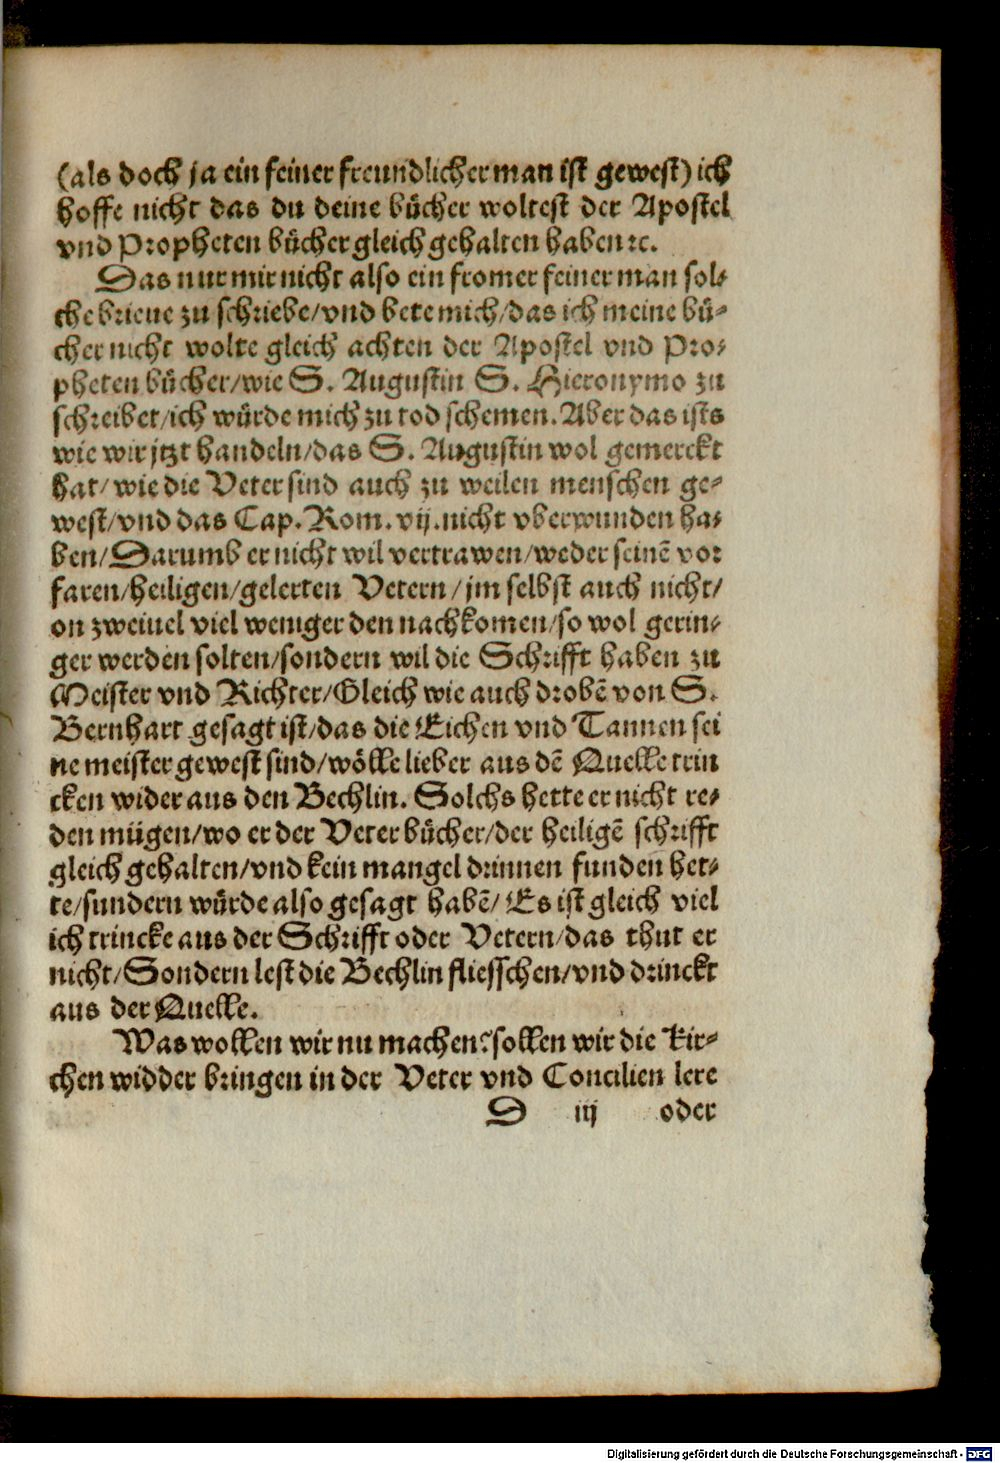 (als doch ja ein feiner freundlicher man ist gewest) ich
hoffe nicht das du deine bücher woltest der Apostel
vnd Propheten bücher gleich gehalten haben ⁊c.
Das nur mir nicht also ein fromer feiner man sol-
che brieue zu schriebe/vnd bete mich/das ich meine bü-
cher nicht wolte gleich achten der Apostel vnd Pro-
pheten bücher/wie S. Augustin S. Hieronymo zu
schreibet/ich würde mich zu tod schemen. Aber das ists
wie wir jtzt handeln/das S. Augustin wol gemerckt
hat/wie die Veter sind auch zu weilen menschen ge-
west/vnd das Cap. Rom. vij. nicht vberwunden ha-
ben/Darumb er nicht wil vertrawen/weder seinē vor
faren/heiligen/gelerten Vetern/jm selbst auch nicht/
on zweiuel viel weniger den nachkomen/so wol gerin-
ger werden solten/sondern wil die Schrifft haben zu
Meister vnd Richter/Gleich wie auch drobē von S.
Bernhart gesagt ist/das die Eichen vnd Tannen sei
ne meister gewest sind/wölle lieber aus dē Quelle trin
cken wider aus den Bechlin. Solchs hette er nicht re-
den mügen/wo er der Veter bücher/der heiligē schrifft
gleich gehalten/vnd kein mangel drinnen funden het-
te/sundern würde also gesagt habē/Es ist gleich viel
ich trincke aus der Schrifft oder Vetern/das thut er
nicht/Sondern lest die Bechlin fliesschen/vnd drinckt
aus der Quelle.
Was wollen wir nu machen? sollen wir die Kir-
chen widder bringen in der Veter vnd Concilien lere
D iij oder
Digitalisierung gefördert durch die Deutsche Forschungsgemeinschaft - DFG